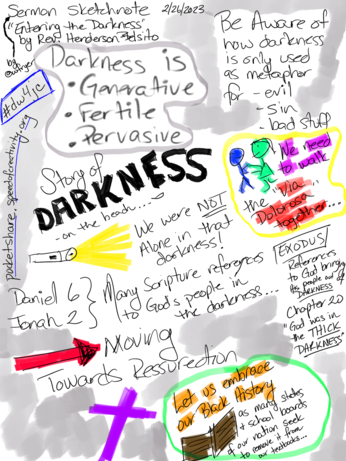 Sermon Sketchnote 2/26/2023
"Entering the Darkness"
by Rev. Henderson
by
#dw4jc
Darkness is
• Generative
• Fertile
• Pervasive
Be Aware of
how darkness
is only used
as metaphor
for - evil
- sin
- bad stuff
Story of
DARKNESS
-on the beach....
We need
to walk
the "via
Dolorosa"
together...
We were NOT
Alone in that
darkness!
EXODUS
References
to God bring
his people out of
DARKNESS
Chapter 20
"God was in
the THICK
DARKNESS"
Daniel 6
Jonah 2
Many Scripture references
to God's people in
the darkness...
Moving
Towards Ressurection
Let us embrace
our Black History
as many states
+ school boards
of our nation seek
to remove it from
our textbooks...